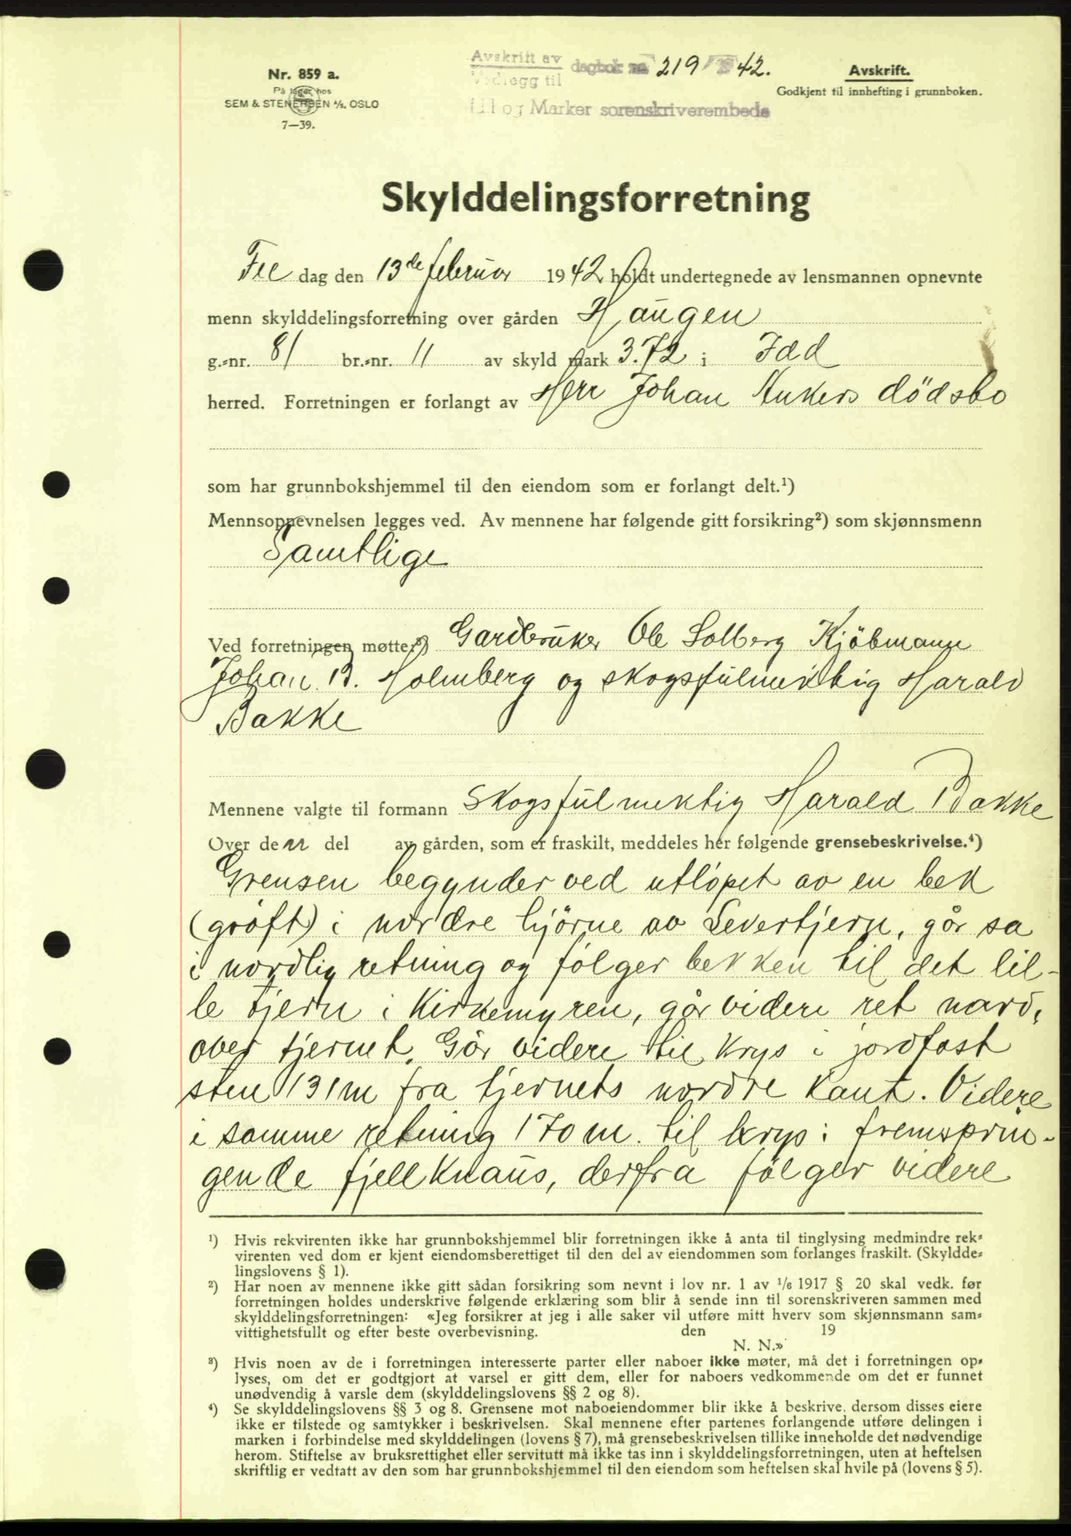 Nr. 859 a.
På lager hos
SEM & STENERSEN A/S, OSLO
7—39.
Avskrift av dagbok nr 219 / 1942.
Vedlegg til
Idd og Marker sorenskriverembede
Avskrift.
Godkjent til innhefting i grunnboken.
Skylddelingsforretning
Fre dag den 13de februar 1942 holdt undertegnede av lensmannen opnevnte
menn skylddelingsforretning over gården Haugen
g.-nr. 81 br.-nr. 11 av skyld mark 3.72 i Idd
herred. Forretningen er forlangt av Herr Johan Ankers dödsbo
som har grunnbokshjemmel til den eiendom som er forlangt delt.¹)
Mennsoppnevnelsen legges ved. Av mennene har følgende gitt forsikring²) som skjønnsmenn
Samtlige
Ved forretningen møtte³) Gardbruker Ole Solberg Kjöbmann
Johan B. Holmberg og skogsfulmektig Harald
Bakke
Mennene valgte til formann skogsfulmektig Harald Bakke
Over den del av gården, som er fraskilt, meddeles her følgende grensebeskrivelse.⁴)
Grensen begynder ved utløpet av en bek
(grøft) i nordre hjörne av Levertjern, går sa
i nordlig retning og følger bekken til det lil-
le tjern i Kirkemyren, går videre ret nord,
over tjernet. Går videre til krys i jordfast
sten 131 m fra tjernets nordre kant. Videre
i samme retning 170 m. til kryp i fremsprin-
gende fjellknaus, derfra følger videre
¹) Hvis rekvirenten ikke har grunnbokshjemmel blir forretningen ikke å anta til tinglysing medmindre rek-
virenten ved dom er kjent eiendomsberettiget til den del av eiendommen som forlanges fraskilt. (Skyldde-
lingslovens § 1).
²) Har noen av mennene ikke gitt sådan forsikring som nevnt i lov nr. 1 av 1/6 1917 § 20 skal vedk. før
forretningen holdes underskrive følgende erklæring som blir å sende inn til sorenskriveren sammen med
skylddelingsforretningen: «Jeg forsikrer at jeg i alle saker vil utføre mitt hverv som skjønnsmann sam-
vittighetsfullt og efter beste overbevisning. den 19
N. N.»
³) Hvis noen av de i forretningen interesserte parter eller naboer ikke møter, må det i forretningen op-
lyses, om det er godtgjort at varsel er gitt dem, eller for naboers vedkommende om det er funnet
unødvendig å varsle dem (skylddelingslovens §§ 2 og 8).
⁴) Se skylddelingslovens §§ 3 og 8. Grensene mot naboeiendommer blir ikke å beskrive, dersom disses eiere
ikke er tilstede og samtykker i beskrivelsen. Skal mennene efter partenes forlangende utføre delingen i
marken i forbindelse med skylddelingen (lovens § 7), må grensebeskrivelsen tillike inneholde det nødvendige
herom. Stiftelse av bruksrettighet eller servitutt må ikke tas inn i skylddelingsforretningen, uten at heftelsen
skriftlig er vedtatt av den som har grunnbokshjemmel til den eiendom som heftelsen skal hvile på (lovens § 5).